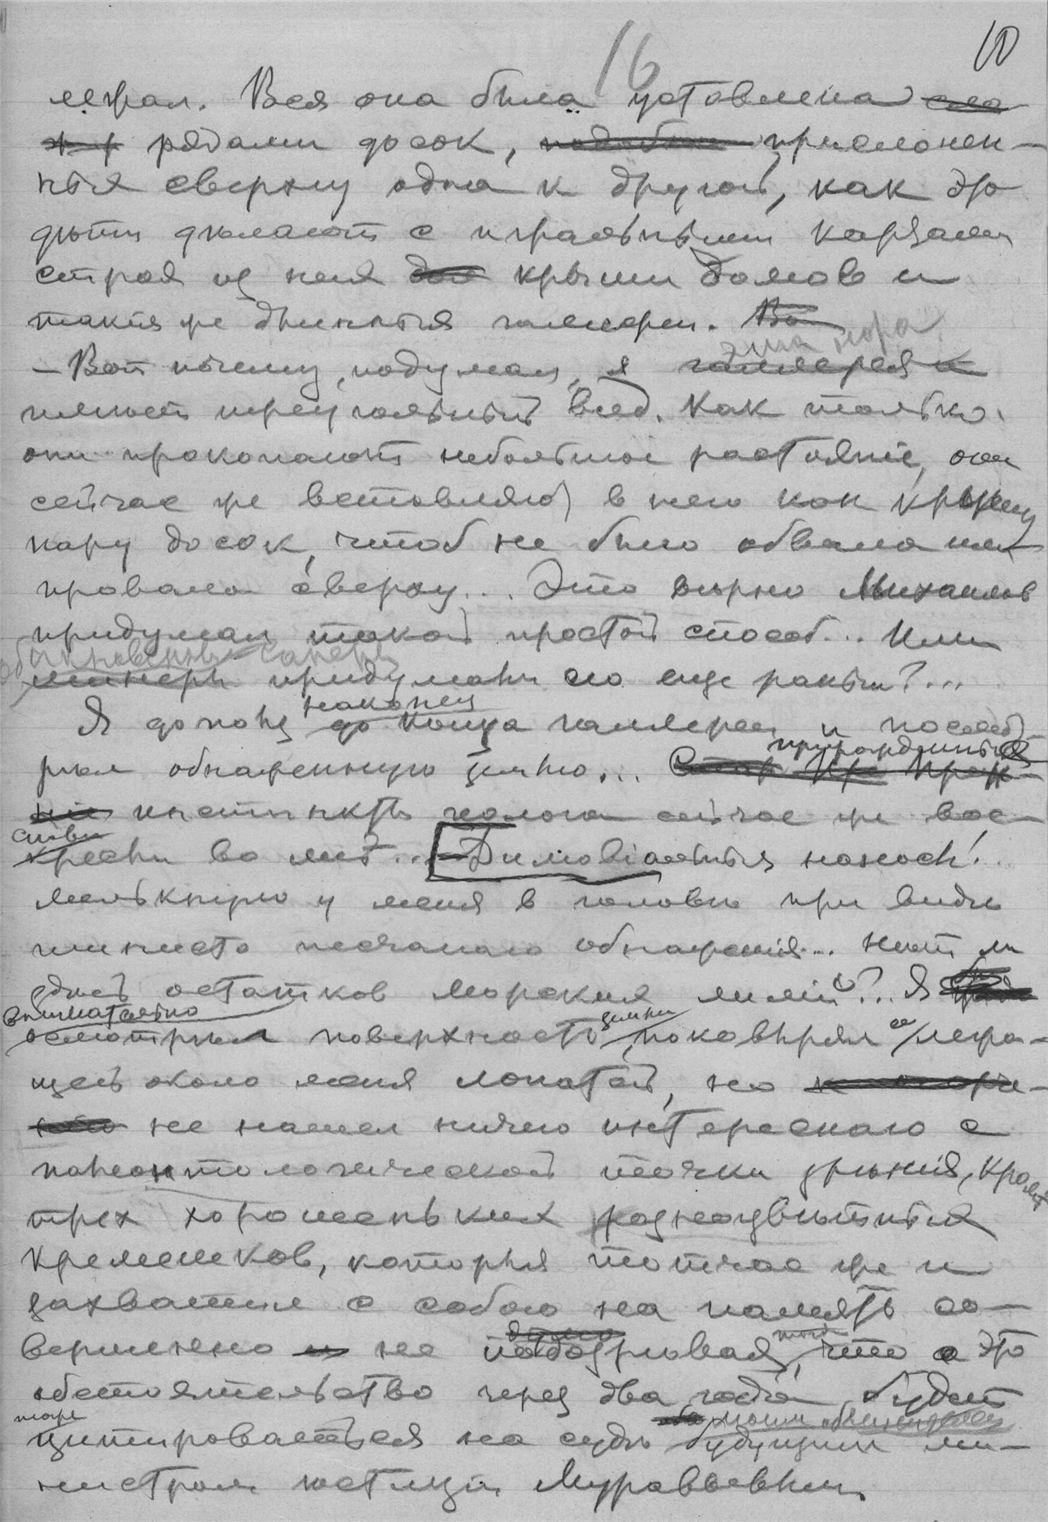 16 10
лежал. Вся она была уставлена
рядами досок, прислонен-
ныя сверху одна к другой, как это
дѣти дѣлают с игральными картами
строя из них крыши домов и
такія же длинныя галлереи. Во
эта нора
— Вот почему, подумал я, галлерея и
имѣет треугольный вид. Как только
они прокопают небольшое растояніе, они
сейчас же вставляют в него как крышу
пару досок, чтоб не было обвала или
провала сверху... Это вѣрно Михайлов
придумал такой простой способ... Или
обыкновенные саперы
минеры придумали его еще раньше?...
наконец
Я дополз до конца галлереи и посмот-
прирожденный
рѣл обнаженную землю... Преж-
ній инстинкт геолога сейчас же вос-
снова
кресъ во мнѣ... — Дилювіальныя наносы!..
мелькнуло у меня в головѣ при видѣ
глинисто песчанаго обнаженія... Нѣт ли
здѣсь остатков морских лилій?.. Я
внимательно
осмотрѣл поверхность земли, поковырял ее лежа-
щей около меня лопатой, но
не нашел ничего интереснаго с
палеонтологической точки зрѣнія, кромѣ
трех хорошеньких разноцвѣтных
кремешков, которые тотчас же и
захватил с собою на память со-
думая тогда
вершенно не подозрѣвая, что это
обстоятельство через два года будет
тоже моим обвинителем
цитироваться на судѣ будущим ми-
нистром юстиціи Муравьевым.